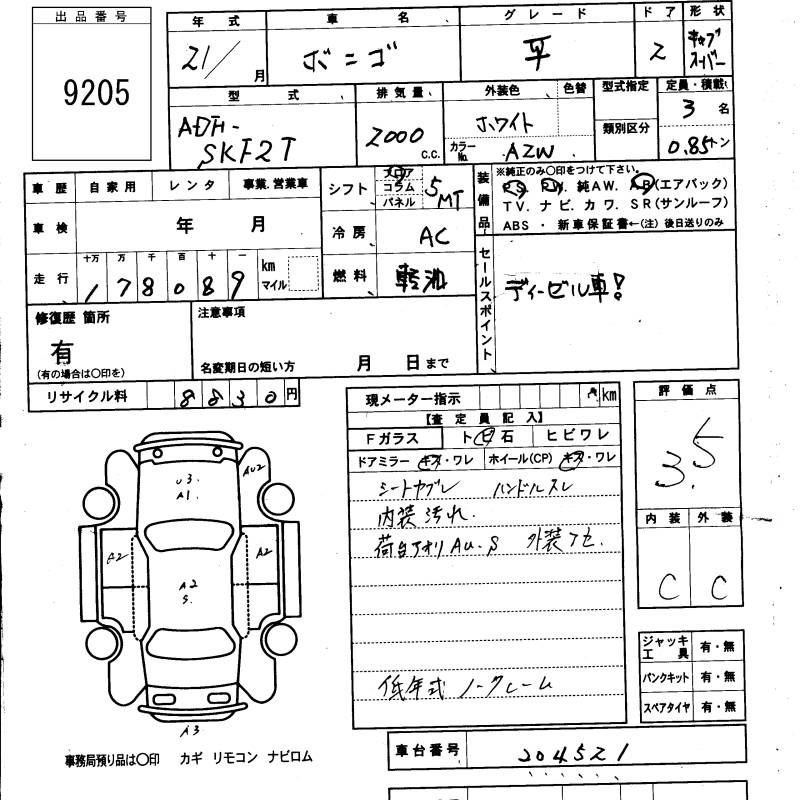 出品番号
9205
年式 車名 グレード ドア 形状
21/ 月 ボンゴ 平 2 キャブ スーパー
型式 排気量 外装色 色替 型式指定 定員・積載
ADF-SKF2T 2000 C.C. ホワイト 類別区分 3 名
カラーNo. AZW 0.85トン
車歴 自家用 レンタ 事業.営業車 シフト フロア コラム パネル 5 MT
装備品 ※純正のみ〇印をつけて下さい。
PS. PW. 純AW. AB(エアバック)
TV. ナビ. カワ. SR(サンルーフ)
ABS ・ 新車保証書←(注) 後日送りのみ
車検 年 月 冷房 AC
走行 十万 万 千 百 十 一
178089 km マイル 燃料 軽油
セールスポイント ディーゼル車!
修復歴 箇所
有
(有の場合は〇印を)
注意事項
名変期日の短い方 月 日まで
リサイクル料 8830円
現メーター指示 km
【査定員記入】
Fガラス トビ石 ヒビワレ
ドアミラー キズ・ワレ ホイール(CP) キズ・ワレ
シートヤブレ ハンドルスレ
内装汚れ.
荷台アオリAU.S 外装フセ.
低年式 ノークレーム
評価点
3.5
内装 外装
C C
ジャッキ工具 有・無
パンクキット 有・無
スペアタイヤ 有・無
U3.
A1.
AU2
A2
A2
A2
S.
A3
事務局預り品は〇印 カギ リモコン ナビロム
車台番号 204521